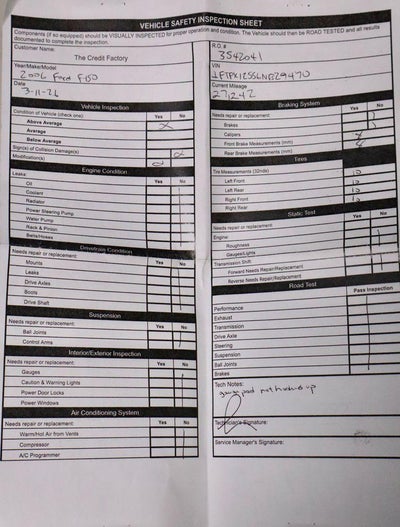 VEHICLE SAFETY INSPECTION SHEET
Components (if so equipped) should be VISUALLY INSPECTED for proper operation and condition. The Vehicle should then be ROAD TESTED and all results
documented to complete the inspection.
Customer Name:
The Credit Factory
Year/Make/Model
2006 Ford F150
Date
3-11-26
Vehicle Inspection
Condition of Vehicle (check one) Yes No
Above Average
Avarage
Below Average
Sign(s) of Collision Damage(s)
Modification(s)
Engine Condition
Leaks Yes No
Oil
Coolant
Radiator
Power Steering Pump
Water Pump
Rack & Pinion
Belts/Hoses
Drivetrain Condition
Needs repair or replacement: Yes No
Mounts
Leaks
Drive Axles
Boots
Drive Shaft
Suspension
Needs repair or replacement: Yes No
Ball Joints
Control Arms
Interior/Exterior Inspection
Needs repair or replacement: Yes No
Gauges
Caution & Warning Lights
Power Door Locks
Power Windows
Air Conditioning System
Needs repair or replacement: Yes No
Warm/Hot Air from Vents
Compressor
A/C Programmer
R.O. #
3542041
VIN
Current Mileage
Braking System
Needs repair or replacement: Yes No
Brakes
Calipers
Front Brake Measurements (mm)
Rear Brake Measurements (mm)
Tires
Tire Measurements (32nds) 10
Left Front
Left Rear
Right Front
Right Rear
Static Test
Needs repair or replacement: Yes No
Engine
Roughness
Gauges/Lights
Transmission Shift
Forward Needs Repair/Replacement
Reverse Needs Repair/Replacement
Road Test
Pass Inspection
Performance
Exhaust
Transmission
Drive Axle
Steering
Suspension
Ball Joints
Brakes
Tech Notes:
not hooked up
Technician's Signature:
Service Manager's Signature: